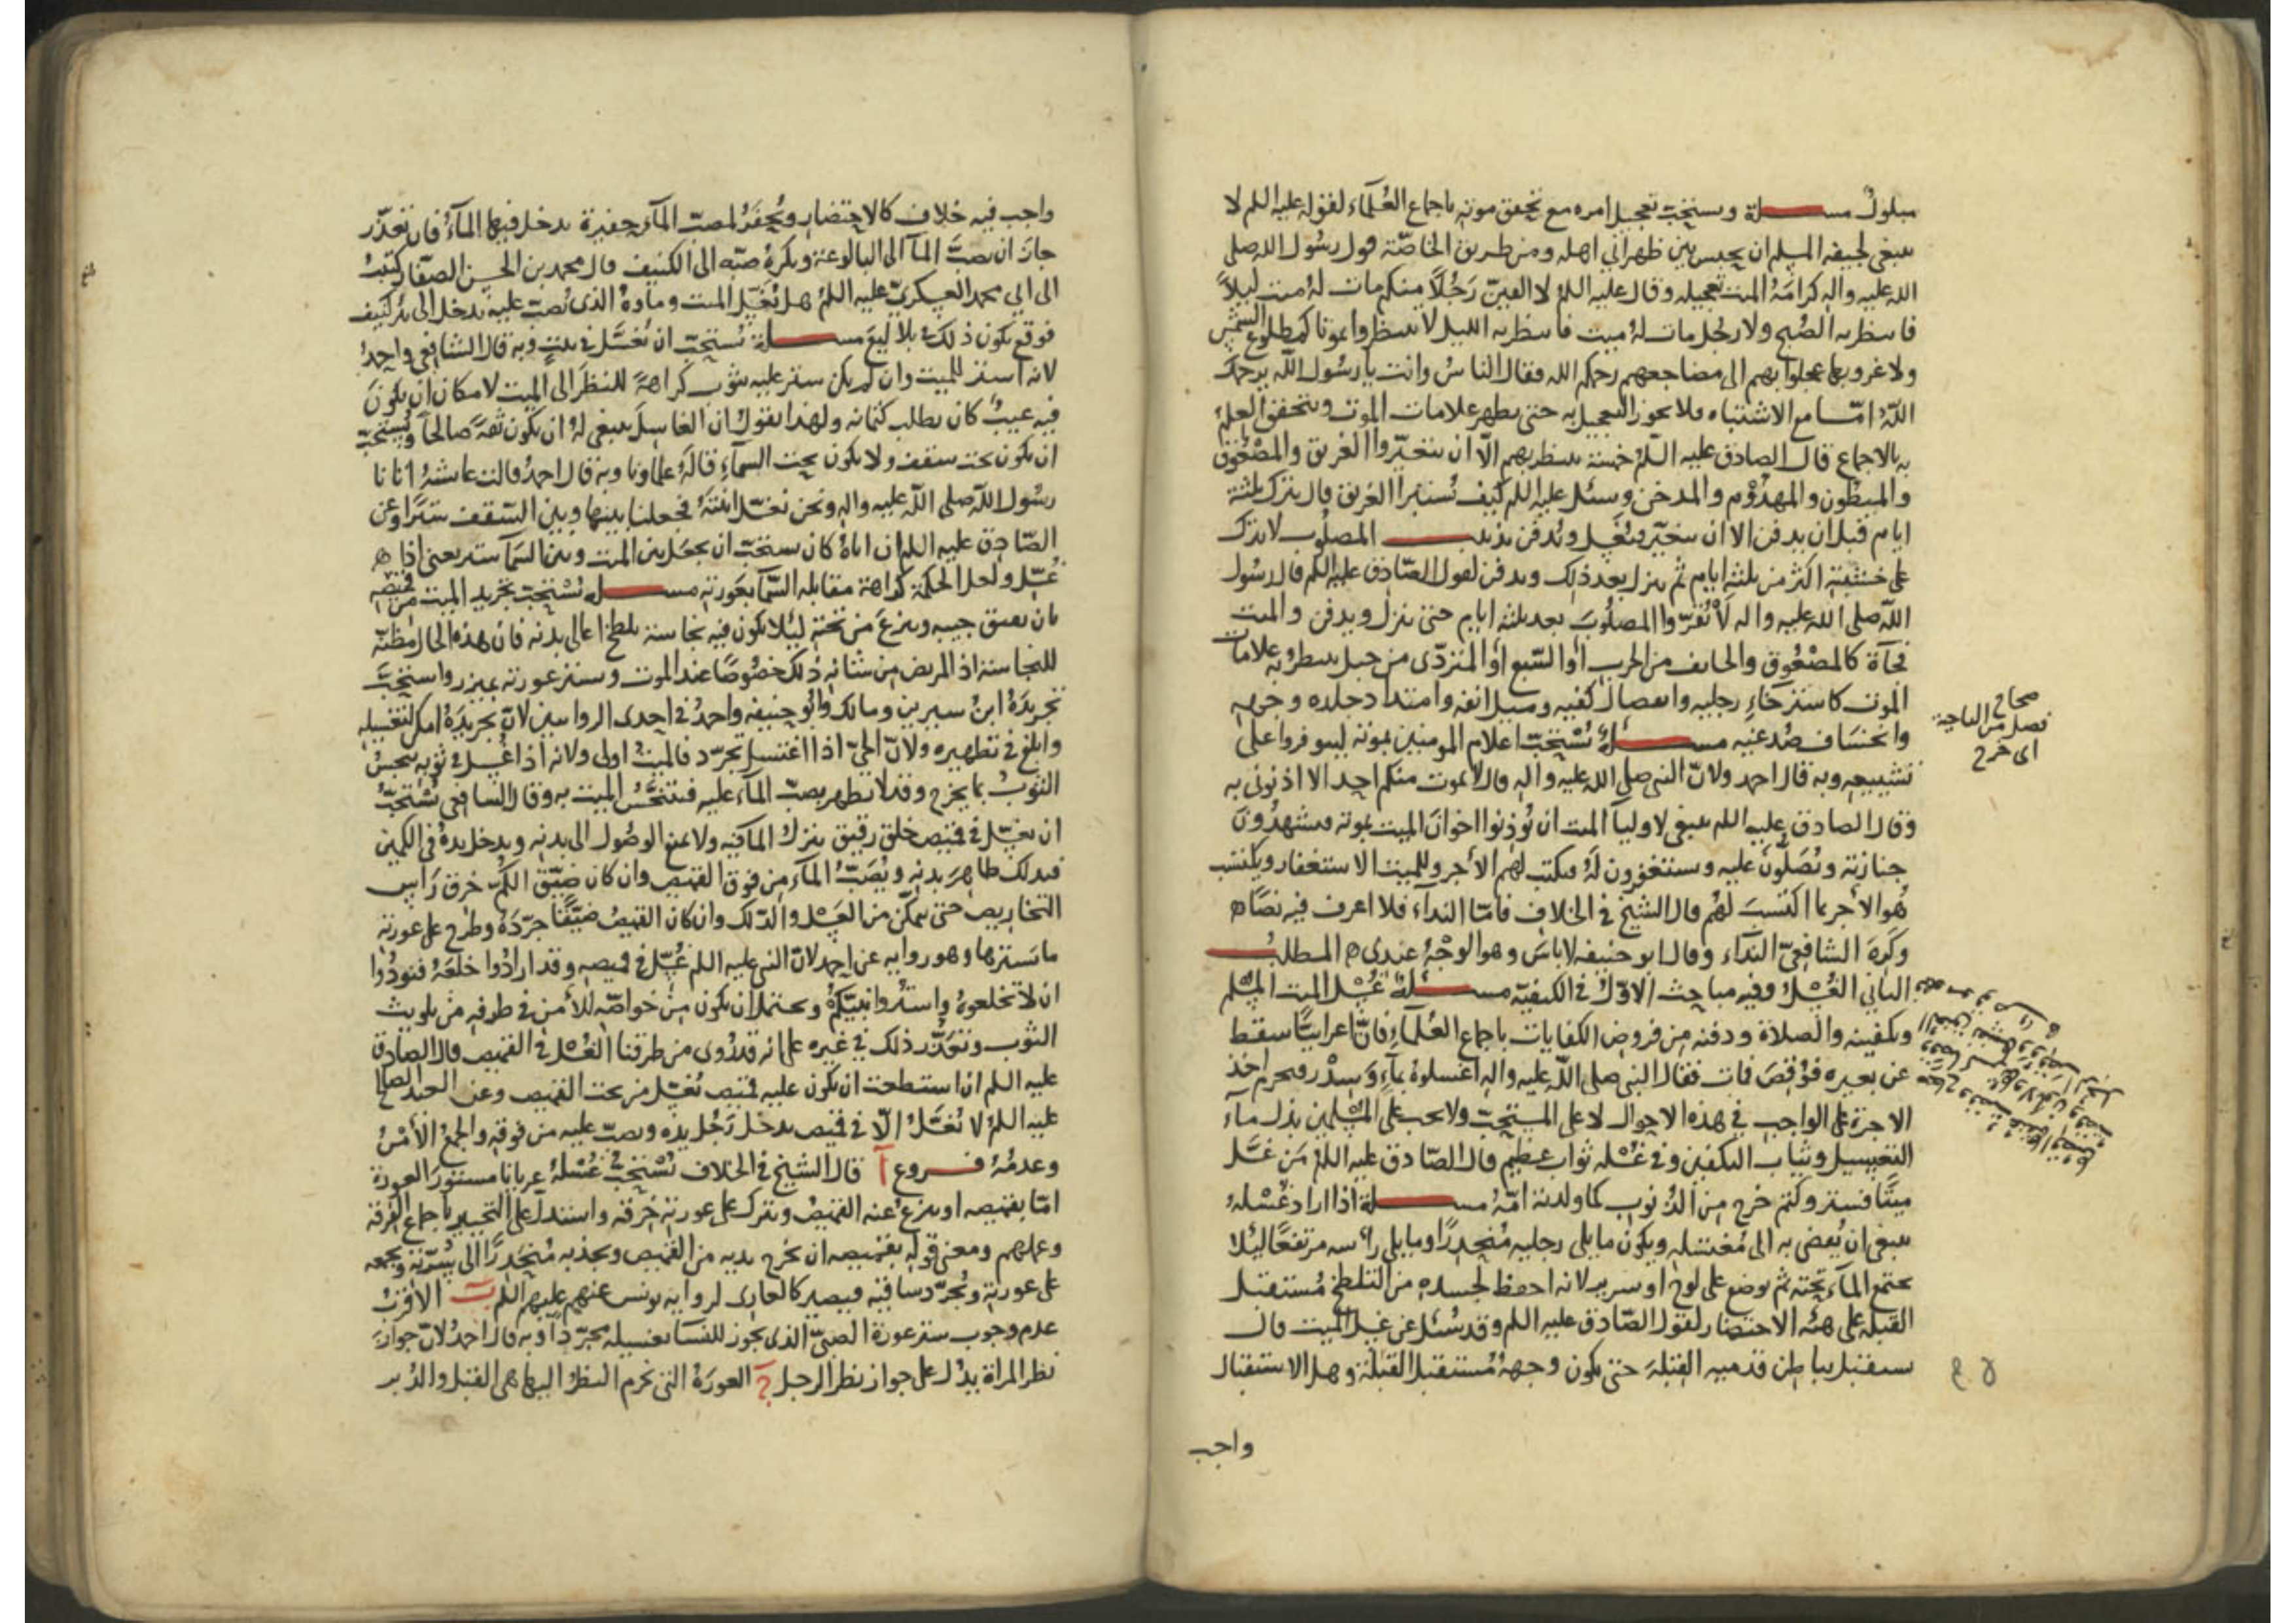 مبلول مسلة ويستحب تعجيل امره مع تحقق موته باجماع العلماء لقوله عليه السلم لا
ينبغى لجيفة المسلم ان يحبس بين ظهرانى اهله ومن طريق الخاصة قول رسول الله صلى
الله عليه واله كرامة الميت تعجيله وقال عليه السلم لا الفين رجلا منكم مات له ميت ليلا
فانتظر به الصبح ولا رجل مات له ميت فانتظر به الليل لا تنتظروا بموتاكم طلوع الشمس
ولا غروبها عجلوا بهم الى مضاجعهم رحمكم الله فقال الناس وانت يا رسول الله يرحمك
الله امّا مع الاشتباه فلا يجوز التعجيل به حتى يظهر علامات الموت ويتحقق العلم
به بالاجماع قال الصادق عليه السلم خمسة ينتظر بهم الّا ان يتغيّروا الغريق والمصعوق
والمبطون والمهدوم والمدخن وسئل عليه السلم كيف يستبرا الغريق قال يترك ثلثة
ايام قبل ان يدفن الا ان يتغير فيغسل ويدفن تذنيب المصلوب لا يترك
على خشبته اكثر من ثلثة ايام ثم ينزل بعد ذلك ويدفن لقول الصادق عليه السلم قال رسول
الله صلى الله عليه واله لا تقرّوا المصلوب بعد ثلثة ايام حتى ينزل ويدفن والميت
فجآة كالمصعوق والخايف من الحرب او السّبع او المتردّى من جبل ينتظر به علامات
الموت كاسترخاء رجليه وانفصال كفيه وميل انفه وامتداد جلده وجهه
وانخساف صدغيه مسئلة يستحب اعلام المومنين بموته ليتوفروا على
تشييعه وبه قال احمد ولانّ النبى صلى الله عليه واله قال لا يموت منكم احد الا اذنونى به
وقال الصادق عليه السلم ينبغى لاوليآ الميت ان يوذنوا اخوان الميت بموته فيشهدون
جنازته ويصلون عليه ويستغفرون له فيكتب لهم الاجر وللميت الاستغفار ويكتسب
هو الاجر بما اكتسب لهم قال الشيخ فى الخلاف فامّا النداء فلا اعرف فيه نصا
وكره الشافعى النداء وقال ابو حنيفة لا باس وهو الوجه عندى المطلب
الثانى الغسل وفيه مباحث الاول فى الكيفية مسئلة غسل الميت المسلم
وتكفينه والصلاة ودفنه من فروض الكفايات باجماع العلماء فانّ اعرابيّا سقط
عن بعيره فوقص فمات فقال النبى صلى الله عليه واله اغسلوه بماء وسدر ويحرم اخذ
الاجرة على الواجب فى هذه الاحوال لا على المستحب ولا يجب على المسلمين بذل ماء
التغسيل وثياب التكفين وفى غسله ثواب عظيم قال الصادق عليه السلم من غسل
ميتا فستر وكتم خرج من الذنوب كما ولدته امّه مسلة اذا اراد غسله
ينبغى ان يفضى به الى مغتسله ويكون ما يلى رجليه منحدرا وما يلى راسه مرتفعا ليلا
يجتمع الماء تحته ثم يوضع على لوح او سرير لانه احفظ لجسده من التلطخ مستقبل
القبلة على هيئة الاحتضار لقول الصادق عليه السلم وقد سئل عن غسل الميت قال
يستقبل بباطن قدميه القبلة حتى يكون وجهه مستقبل القبلة وهل الاستقبال
واجب
صحاح
اى خرج
واجب فيه خلاف كالاحتضار ويحفر لمصبّ المآء حفيرة يدخل فيها المآء فان تعذّر
جاز ان يصبّ المآ الى البالوعة ويكره صبه الى الكنيف قال محمد بن الحسن الصفار كتبت
الى ابى محمد العسكرى عليه السلم هل يغسّل الميت وماؤه الذى يصب عليه يدخل الى بئر كنيف
فوقع يكون ذلك فى بلاليع مسلة يستحب ان يغسّل فى بيت وبه قال الشافعى واحمد
لانه استر للميت وان لم يكن ستر عليه بثوب كراهة للنظر الى الميت لامكان ان يكون
فيه عيب كان يطلب كتمانه ولهذا نقول ان الغاسل ينبغى له ان يكون ثقة صالحا ويستحب
ان يكون تحت سقف ولا يكون تحت السمآء قاله علماونا وبه قال احمد قالت عايشة اتانا
رسول الله صلى الله عليه واله ونحن نغسّل ابنته فجعلنا بينها وبين السقف سترا وعن
الصادق عليه السلم ان اباه كان يستحب ان يجعل بين الميت وبين السمآ ستر يعنى اذا
غسّل ولعل الحكمة كراهة مقابلة السمآ بعورته مسلة يستحب تجريد الميت من قميصه
بان يفتق جيبه وينزع من تحته ليلا يكون فيه نجاسة يلطخ اعالى بدنه فان هذه الحال مظنة
للنجاسة اذ المريض من شانه ذلك خصوصا عند الموت ويستر عورته بميزر واستحب
تجريده ابن سيرين ومالك وابو حنيفة واحمد فى احدى الروايتين لان تجريده امكن لتغسيله
وابلغ فى تطهيره ولانّ الحىّ اذا اغتسل تجرّد فالميت اولى ولانه اذا غسل فى ثوبه ينجس
الثوب بما يخرج وقد لا يطهر بصبّ المآء عليه فيتنجّس الميت به وقال الشافعى يستحبّ
ان يغسّل فى قميص خلق رقيق ينزل المآ فيه ولا يمنع الوصول الى بدنه ويدخل يده فى الكمين
فيدلك ظاهر بدنه ويصبّ المآء من فوق القميص وان كان ضيّق الكم خرق راس
التخاريص حتى يتمكّن من الغسل والدلك وان كان القميص ضيّقا جرّده وطرح على عورته
ما يسترها وهو رواية عن احمد لانّ النبى عليه السلم غسّل فى قميصه وقد ارادوا خلعه فنودوا
ان لا تخلعوه واستروا نبيّكم ويحتمل ان يكون من خواصّه للأمن فى طرفه من تلويث
الثوب وتعذّر ذلك فى غيره على انه قد روى من طرقنا الغسل فى القميص قال الصادق
عليه السلم ان استطعت ان يكون عليه قميص تغسّل من تحت القميص وعن العبد الصالح
عليه السلم لا يغسّل الّا فى قميص يدخل رجل يده ويصب عليه من فوقه والجمع الأمن
وعدمه فروع آ قال الشيخ فى الخلاف يستحب غسله عريانا مستور العورة
امّا بقميصه او ينزع عنه القميص ويترك على عورته خرقة واستدل على التخيير باجماع الفرقة
وعملهم ومعنى قوله بقميصه ان يخرج يديه من القميص ويجذبه منحدرا الى سرّته ويجمعه
على عورته ويجرّد ساقيه فيصير كالعارى لرواية يونس عنهم عليهم السلم ب الاقرب
عدم وجوب ستر عورة الصبىّ الذى يجوز للنسآ تغسيله مجرّدا وبه قال احمد لانّ جواز
نظر المراة يدل على جواز نظر الرجل ج العورة التى يحرم النظر اليها هى القبل والدبر